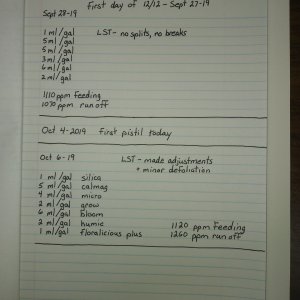 first day of 12/12 - Sept 27-19
Sept 28-19
1 ml/gal LST - no splits, no breaks
5 ml/gal
5 ml/gal
3 ml/gal
6 ml/gal
2 ml/gal
1110 ppm feeding
1070 ppm runoff
Oct 4-2019 first pistil today
Oct 6-19 LST - made adjustments
+ minor defoliation
1 ml/gal silica
5 ml/gal calmag
4 ml/gal micro
2 ml/gal grow
6 ml/gal bloom
2 ml/gal humic 1120 ppm feeding
1 ml/gal floralicious plus 1260 ppm runoff